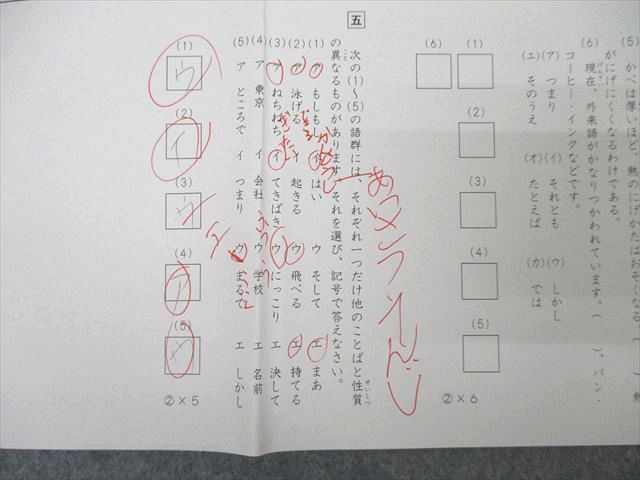 (5) かべは厚いほど、熱のにげかたはおそくなる
がにげにくくなるわけである。
(6) 現在、外来語がかなりつかわれています。( )、パン・
げんざい
コーヒー・インクなどです。
(ア) つまり (イ) それとも (ウ) しかし
(エ) そのうえ (オ) たとえば (カ) では
(1)
(2)
(3)
(4)
(5)
(6)
②×6
五
次の(1)〜(5)の語群には、それぞれ一つだけ他のことばと性質
こと
せいしつ
の異なるものがあります。それを選び、記号で答えなさい。
(1) ア もしもし イ はい ウ そして エ まあ
(2) ア 泳げる イ 起きる ウ 飛べる エ 持てる
(3) ア ねちねち イ てきぱき ウ にっこり エ 決して
(4) ア 東京 イ 会社 ウ 学校 エ 名前
(5) ア ところで イ つまり ウ まるで エ しかし
(1) ウ
(2) イ
(3) ウ エ
(4) ア
(5) ウ
②×5